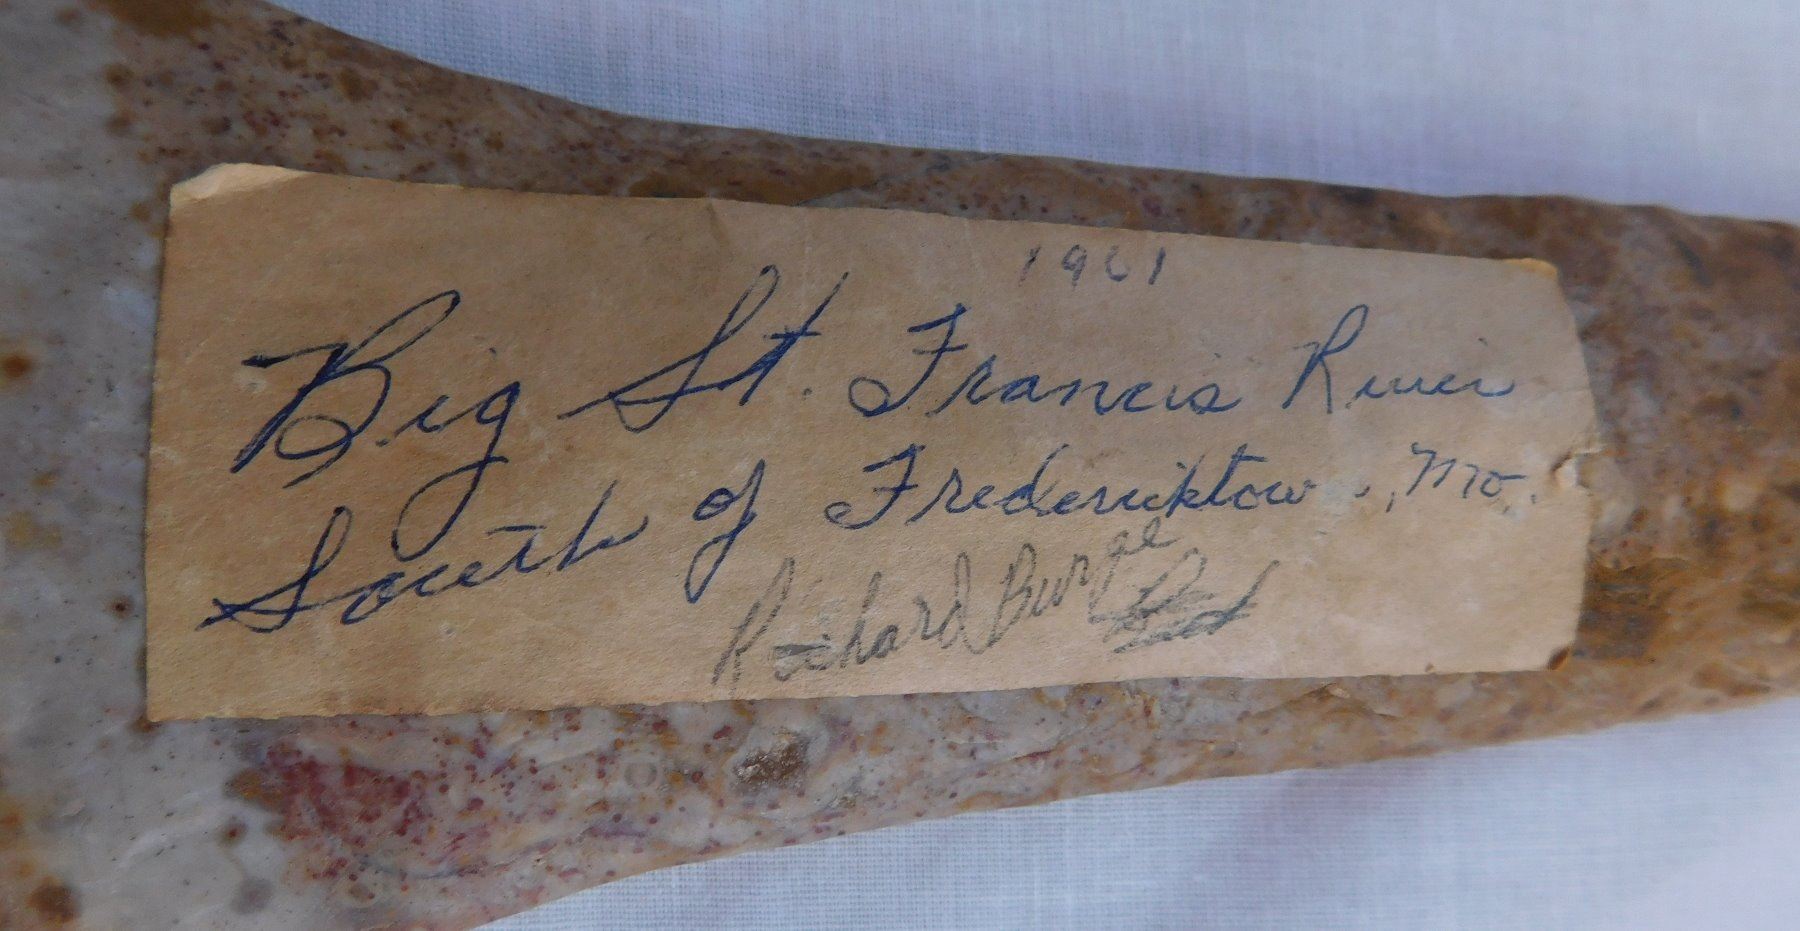 1961
Big St. Francis River
South of Fredericktow, Mo.
Richard Burge